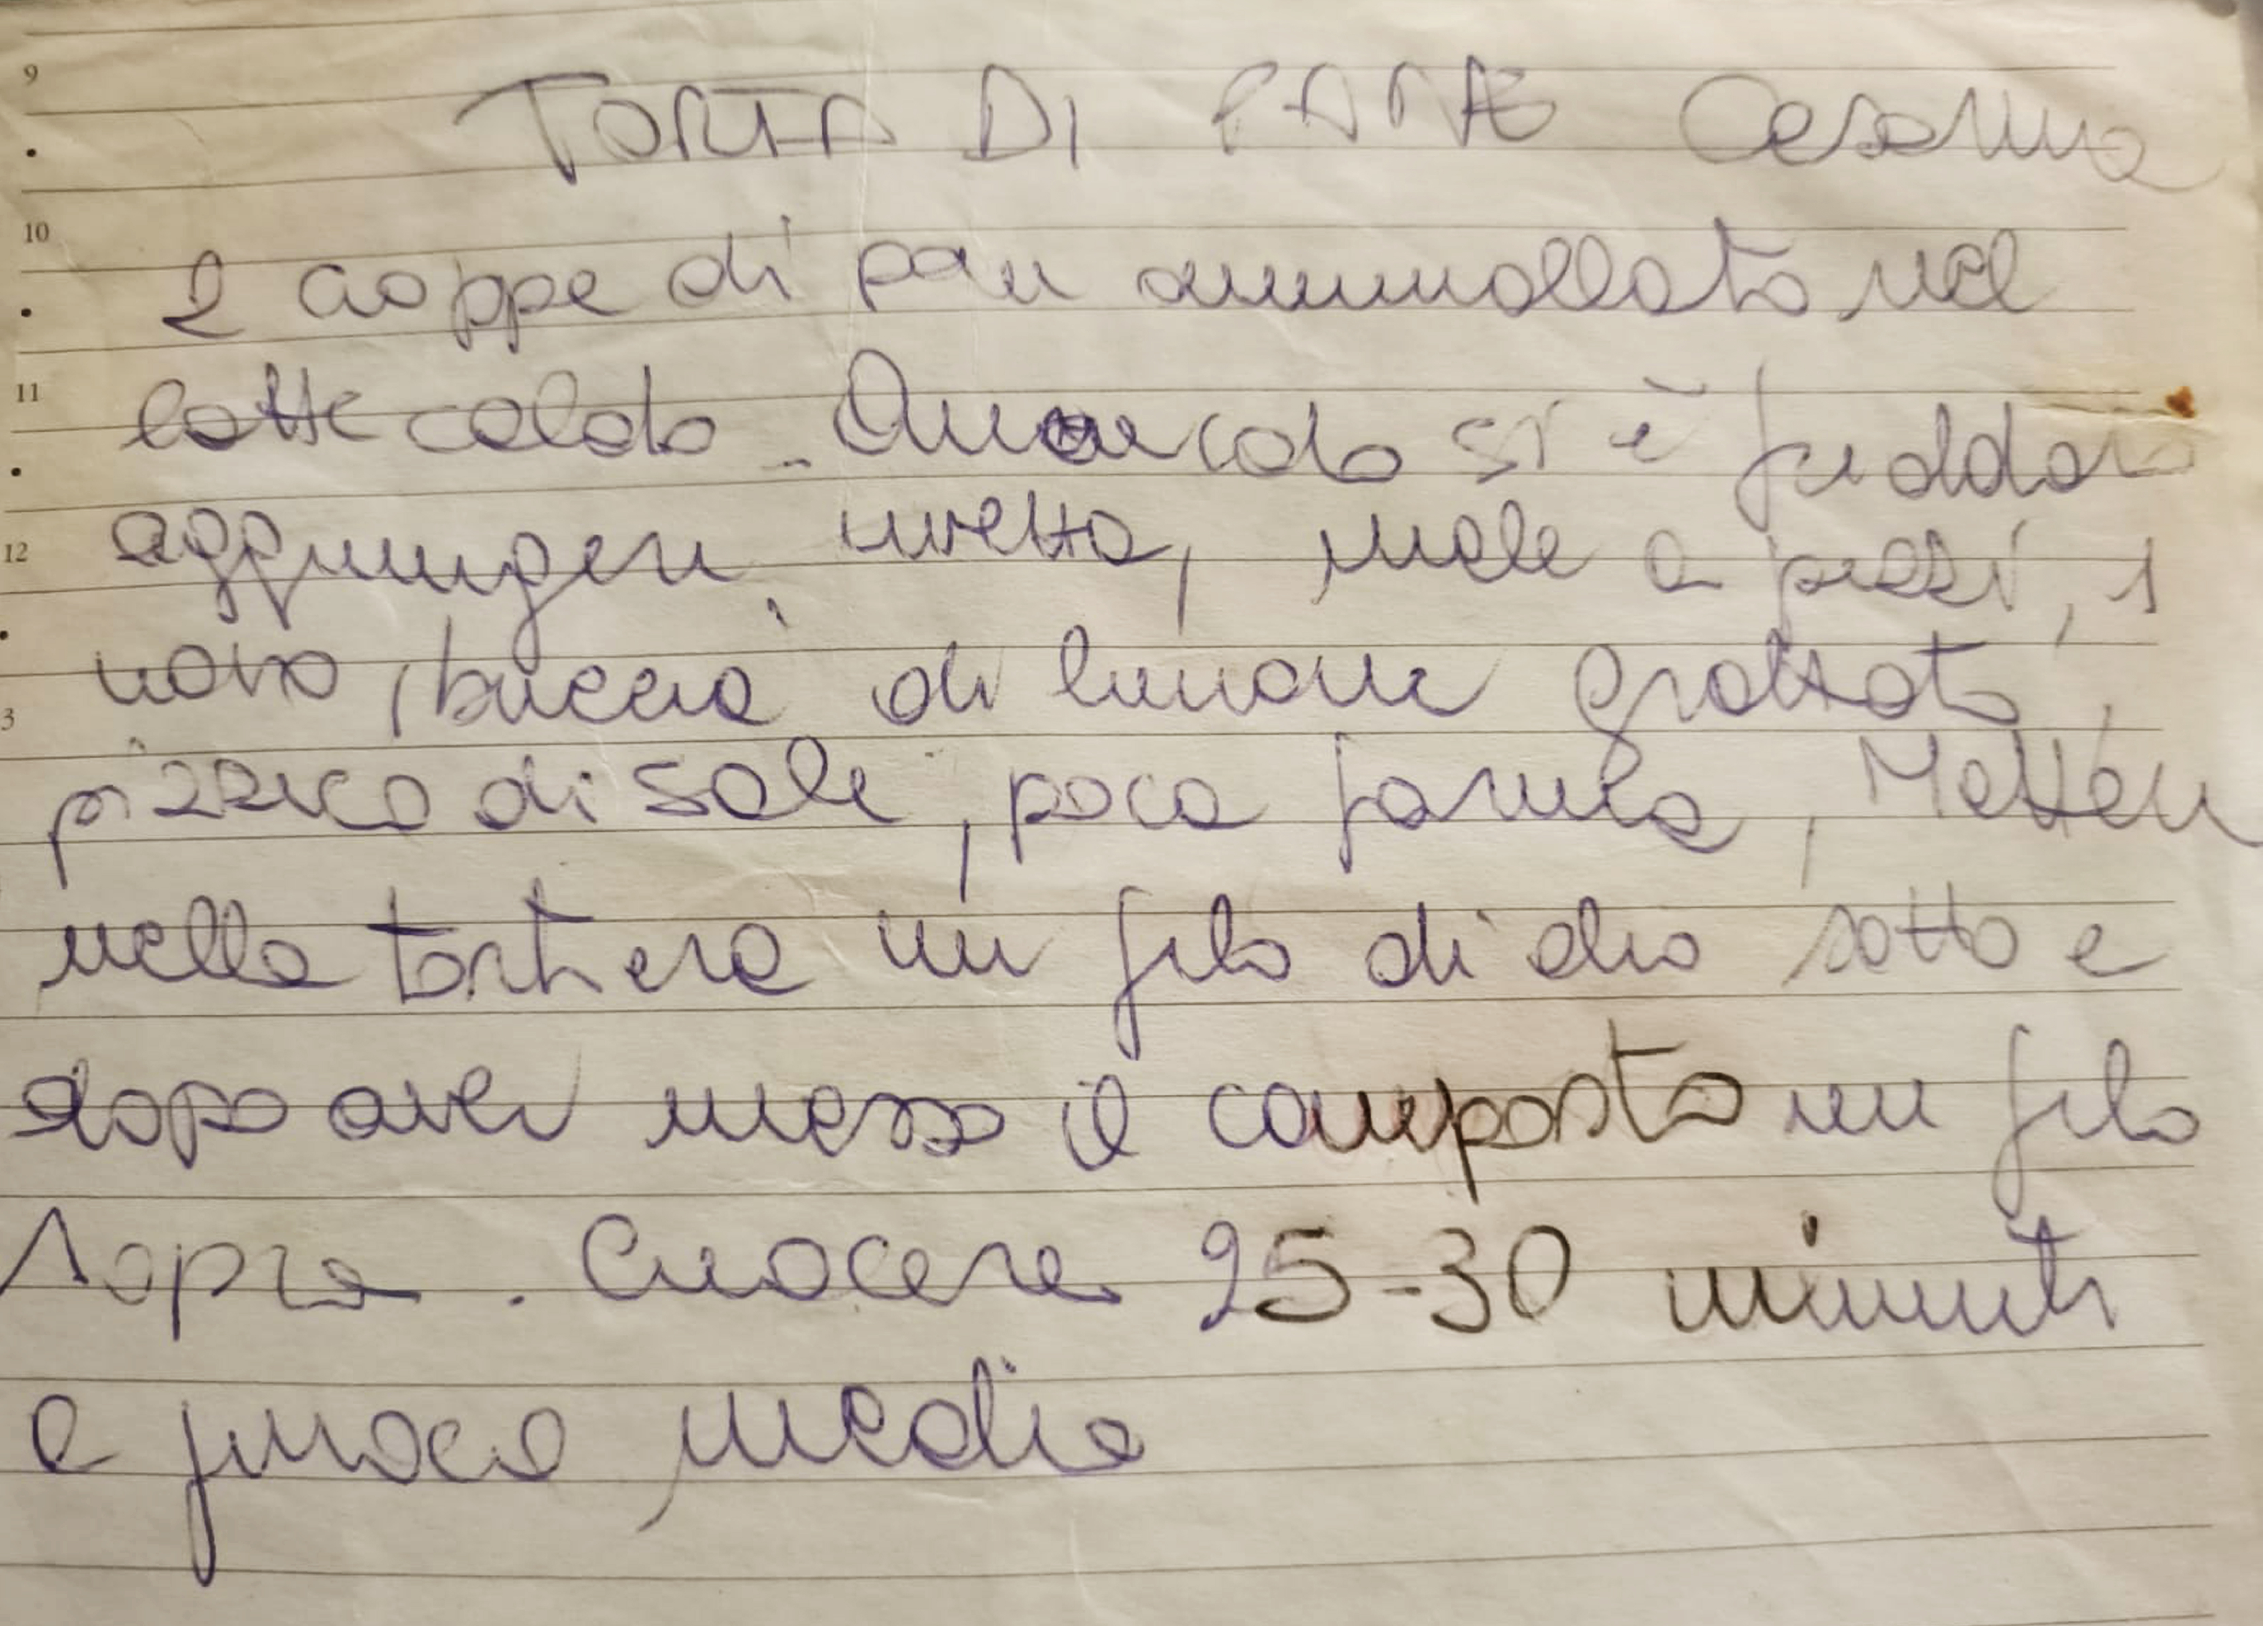 9
TORTA DI PANE Cesarina
10
2 coppe di pan ammollato nel
11
latte caldo. Quando si è freddato
12
aggiungere uvetta, mele a pezzi, 1
uovo, buccia di limone grattata,
3
pizzico di sale, poca farina, Mettere
nella tortiera un filo di olio sotto e
dopo aver messo il composto un filo
sopra. Cuocere 25-30 minuti
a fuoco medio